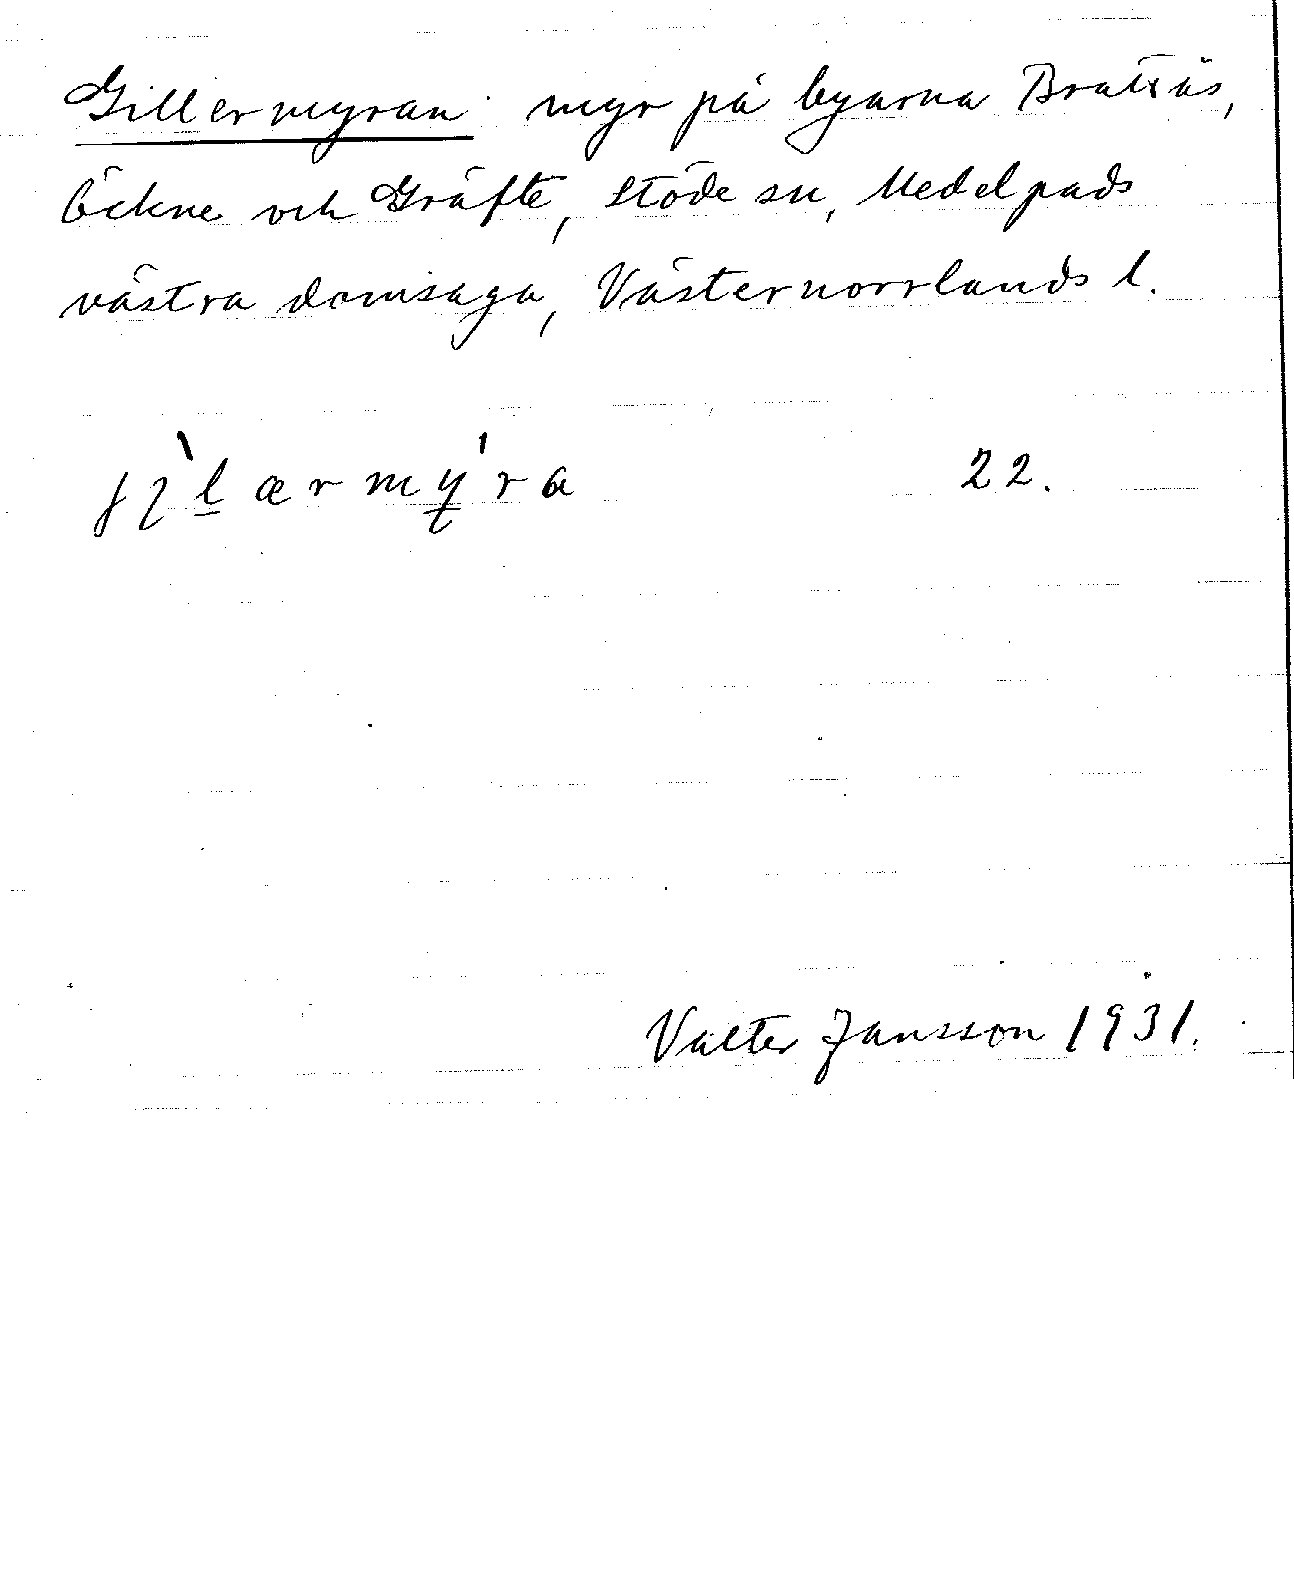 Gillermyran myr på byarna Brattås,
Öckne och Gräfte, Stöde sn, Medelpads
västra domsaga, Västernorrlands l.
22.
Valter Jansson 1931.